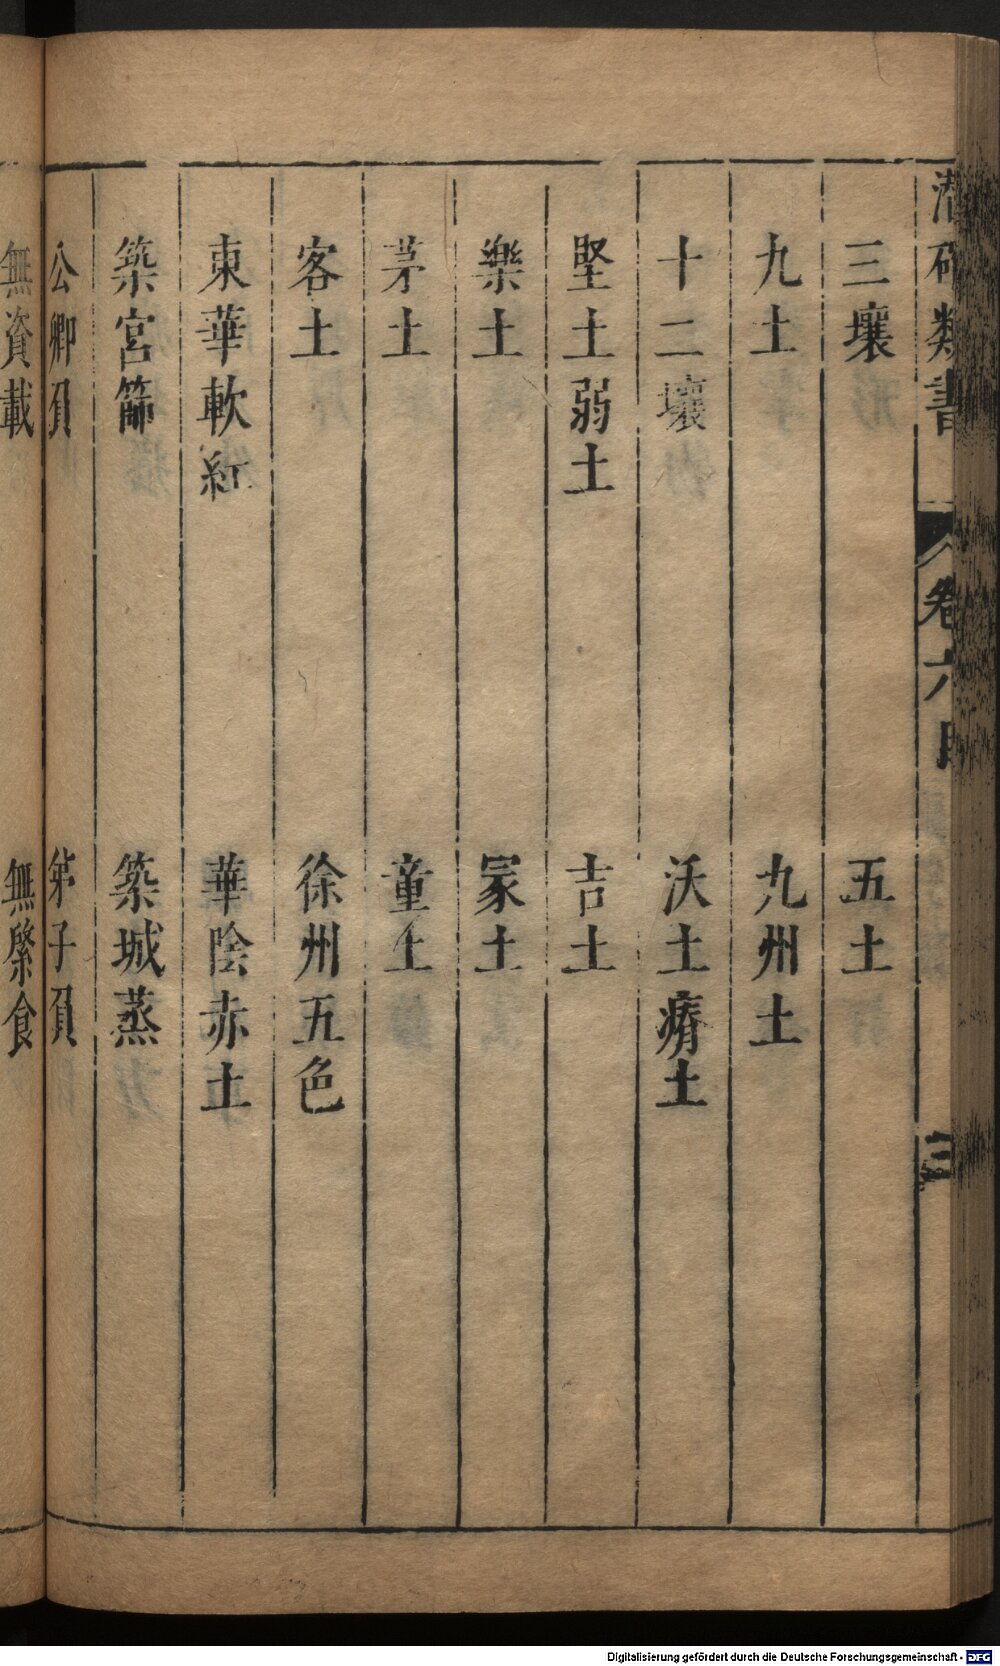 類書 卷六目 三
三壤 五土
九土 九州土
十二壤 沃土瘠土
堅土弱土 吉土
樂土 冢土
茅土 童土
客土 徐州五色
東華軟紅 華陰赤土
築宮篩 築城蒸
公卿負 弟子負
無資載 無槃食
Digitalisierung gefördert durch die Deutsche Forschungsgemeinschaft - DFG